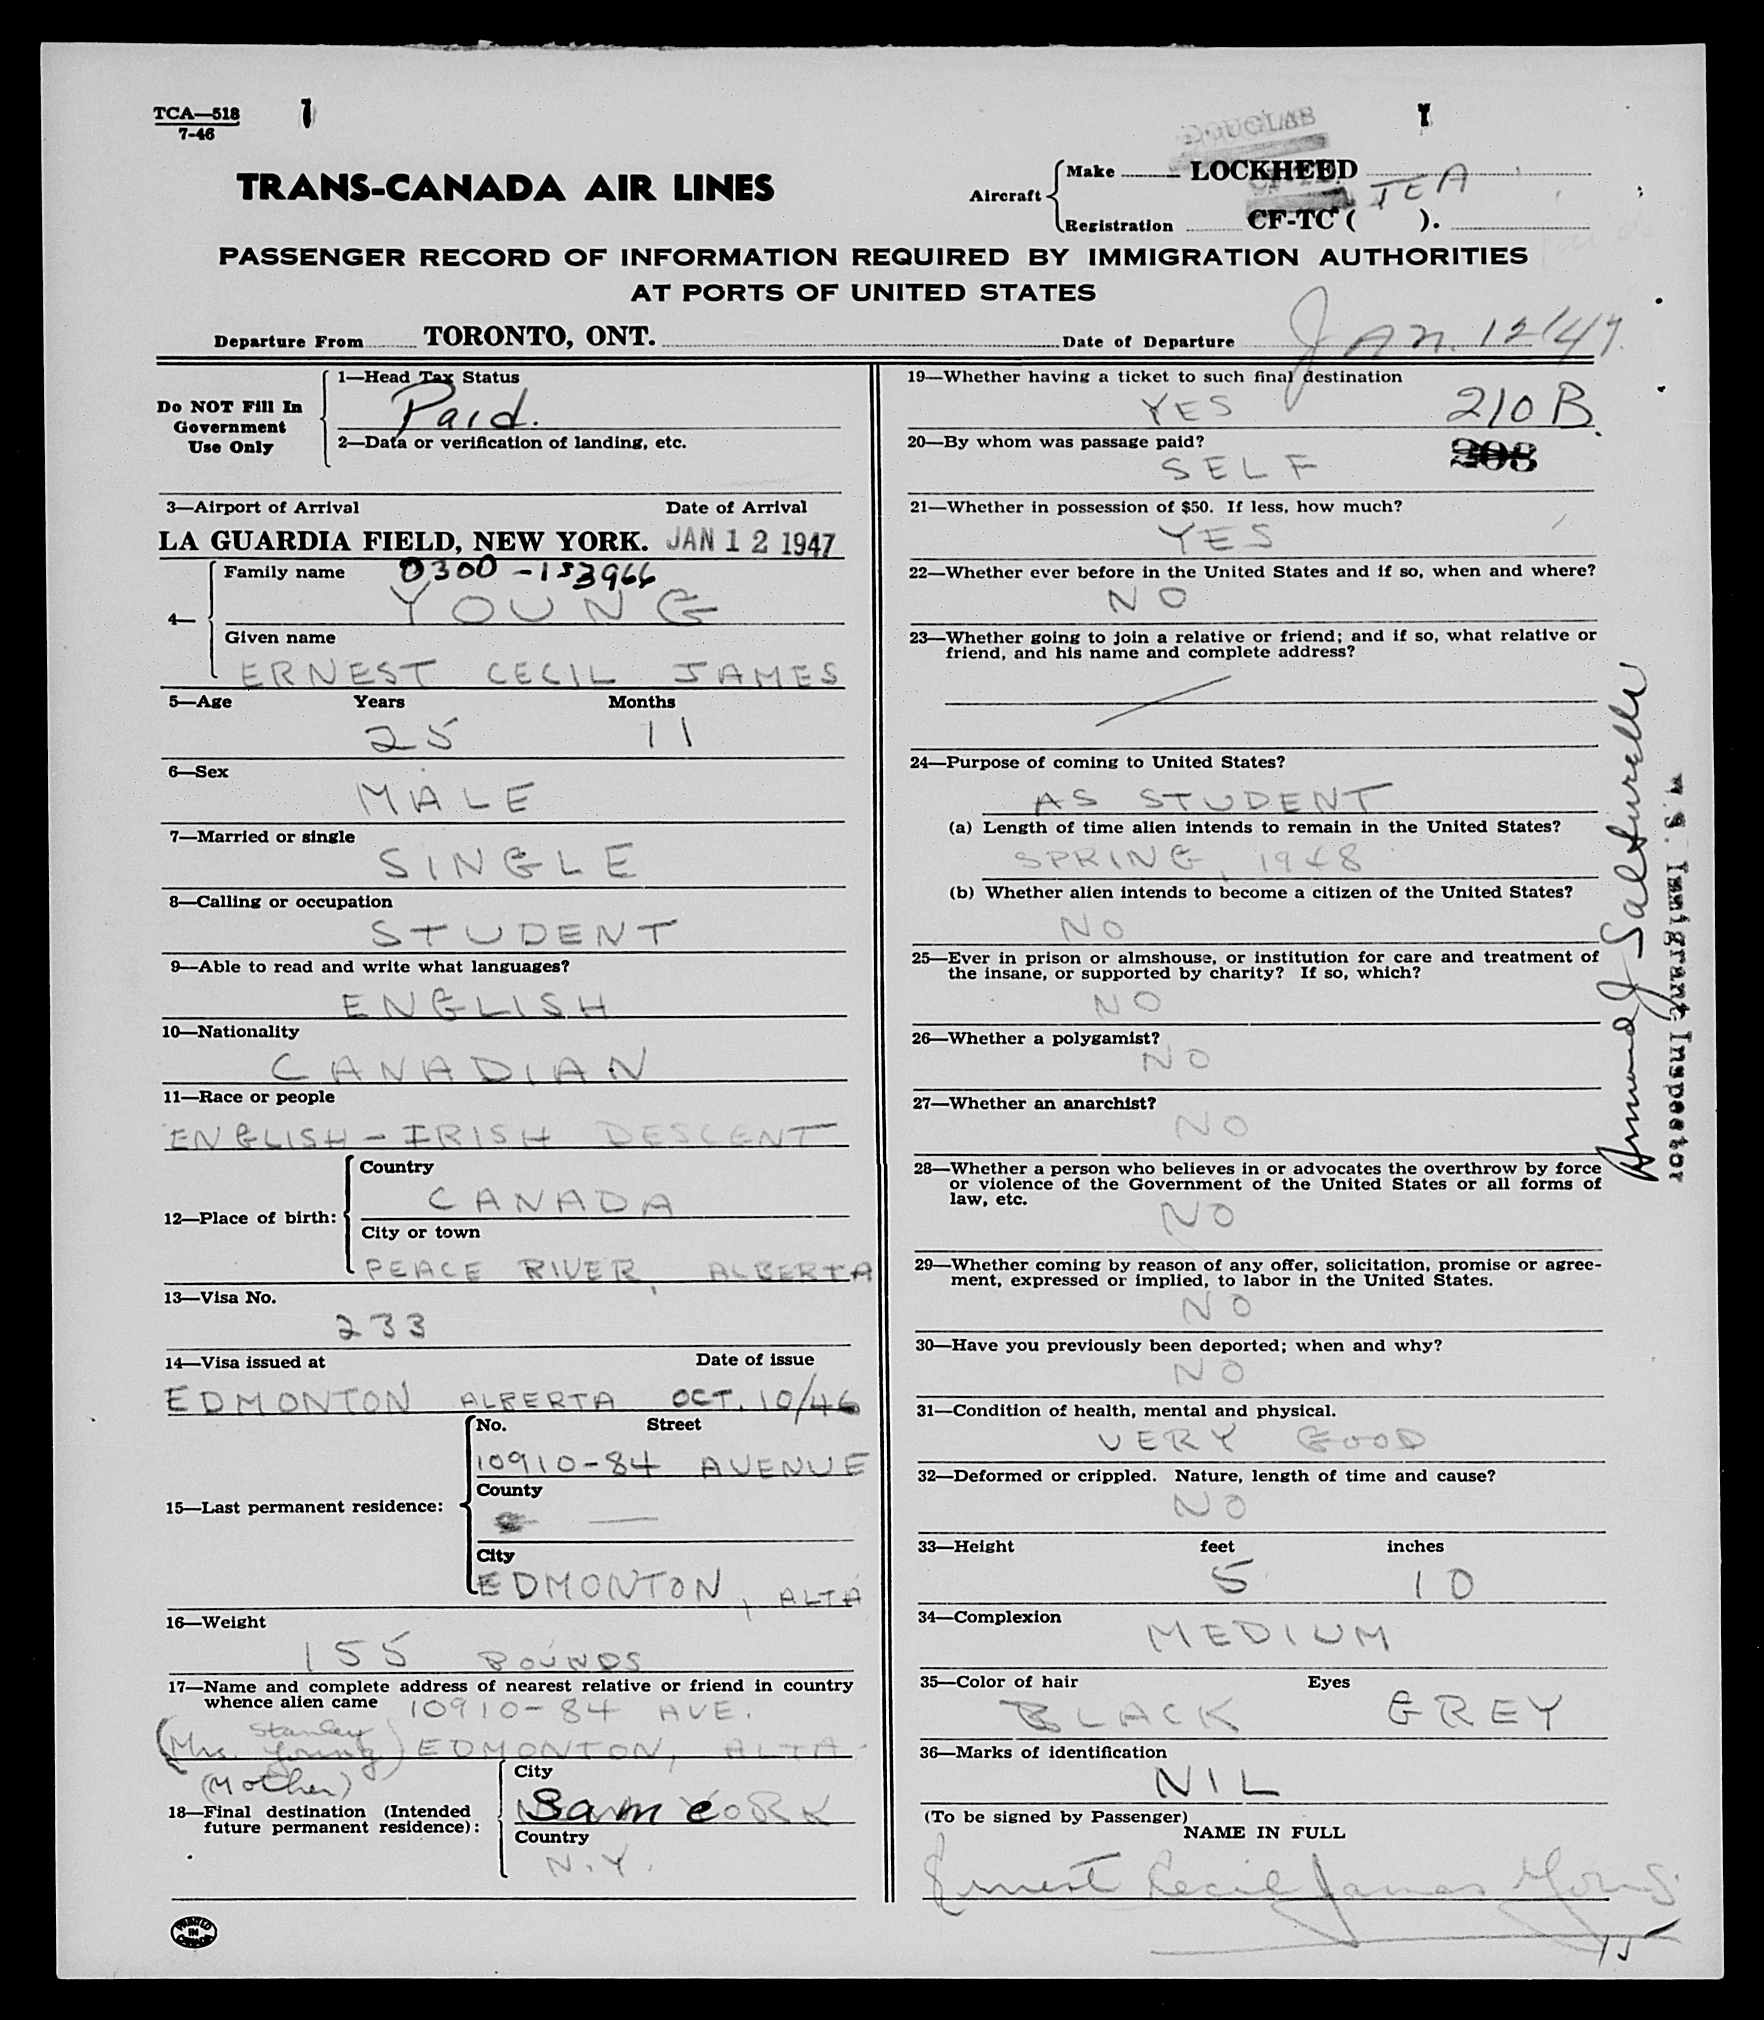 TCA—518
7-46
1
Y
DOUGLAS
TRANS-CANADA AIR LINES
Aircraft
Make LOCKHEED
Registration CF-TC ( ). TEA
PASSENGER RECORD OF INFORMATION REQUIRED BY IMMIGRATION AUTHORITIES
AT PORTS OF UNITED STATES
Departure From TORONTO, ONT. Date of Departure JAN. 12/47.
Do NOT Fill In
Government
Use Only
1—Head Tax Status
Paid.
2—Data or verification of landing, etc.
3—Airport of Arrival Date of Arrival
LA GUARDIA FIELD, NEW YORK. JAN 12 1947
4—
Family name 0300-153966
YOUNG
Given name
ERNEST CECIL JAMES
5—Age Years Months
25 11
6—Sex
MALE
7—Married or single
SINGLE
8—Calling or occupation
STUDENT
9—Able to read and write what languages?
ENGLISH
10—Nationality
CANADIAN
11—Race or people
ENGLISH-IRISH DESCENT
12—Place of birth:
Country
CANADA
City or town
PEACE RIVER, ALBERTA
13—Visa No.
233
14—Visa issued at Date of issue
EDMONTON ALBERTA OCT. 10/46
15—Last permanent residence:
No. Street
10910-84 AVENUE
County
—
City
EDMONTON, ALTA
16—Weight
155 POUNDS
17—Name and complete address of nearest relative or friend in country
whence alien came 10910-84 AVE.
(Mrs. Stanley Young) EDMONTON, ALTA.
(Mother)
18—Final destination (Intended
future permanent residence):
City
Same
Country
N.Y.
PRINTED
IN
CANADA
19—Whether having a ticket to such final destination
YES 210 B.
20—By whom was passage paid?
SELF 208
21—Whether in possession of $50. If less, how much?
YES
22—Whether ever before in the United States and if so, when and where?
NO
23—Whether going to join a relative or friend; and if so, what relative or
friend, and his name and complete address?
24—Purpose of coming to United States?
AS STUDENT
(a) Length of time alien intends to remain in the United States?
SPRING, 1948
(b) Whether alien intends to become a citizen of the United States?
NO
25—Ever in prison or almshouse, or institution for care and treatment of
the insane, or supported by charity? If so, which?
NO
26—Whether a polygamist?
NO
27—Whether an anarchist?
NO
28—Whether a person who believes in or advocates the overthrow by force
or violence of the Government of the United States or all forms of
law, etc.
NO
29—Whether coming by reason of any offer, solicitation, promise or agree-
ment, expressed or implied, to labor in the United States.
NO
30—Have you previously been deported; when and why?
NO
31—Condition of health, mental and physical.
VERY GOOD
32—Deformed or crippled. Nature, length of time and cause?
NO
33—Height feet inches
5 10
34—Complexion
MEDIUM
35—Color of hair Eyes
BLACK GREY
36—Marks of identification
NIL
(To be signed by Passenger)
NAME IN FULL
Ernest Cecil James Young.
15
Armand J Salturelli
U. S. Immigrant Inspector